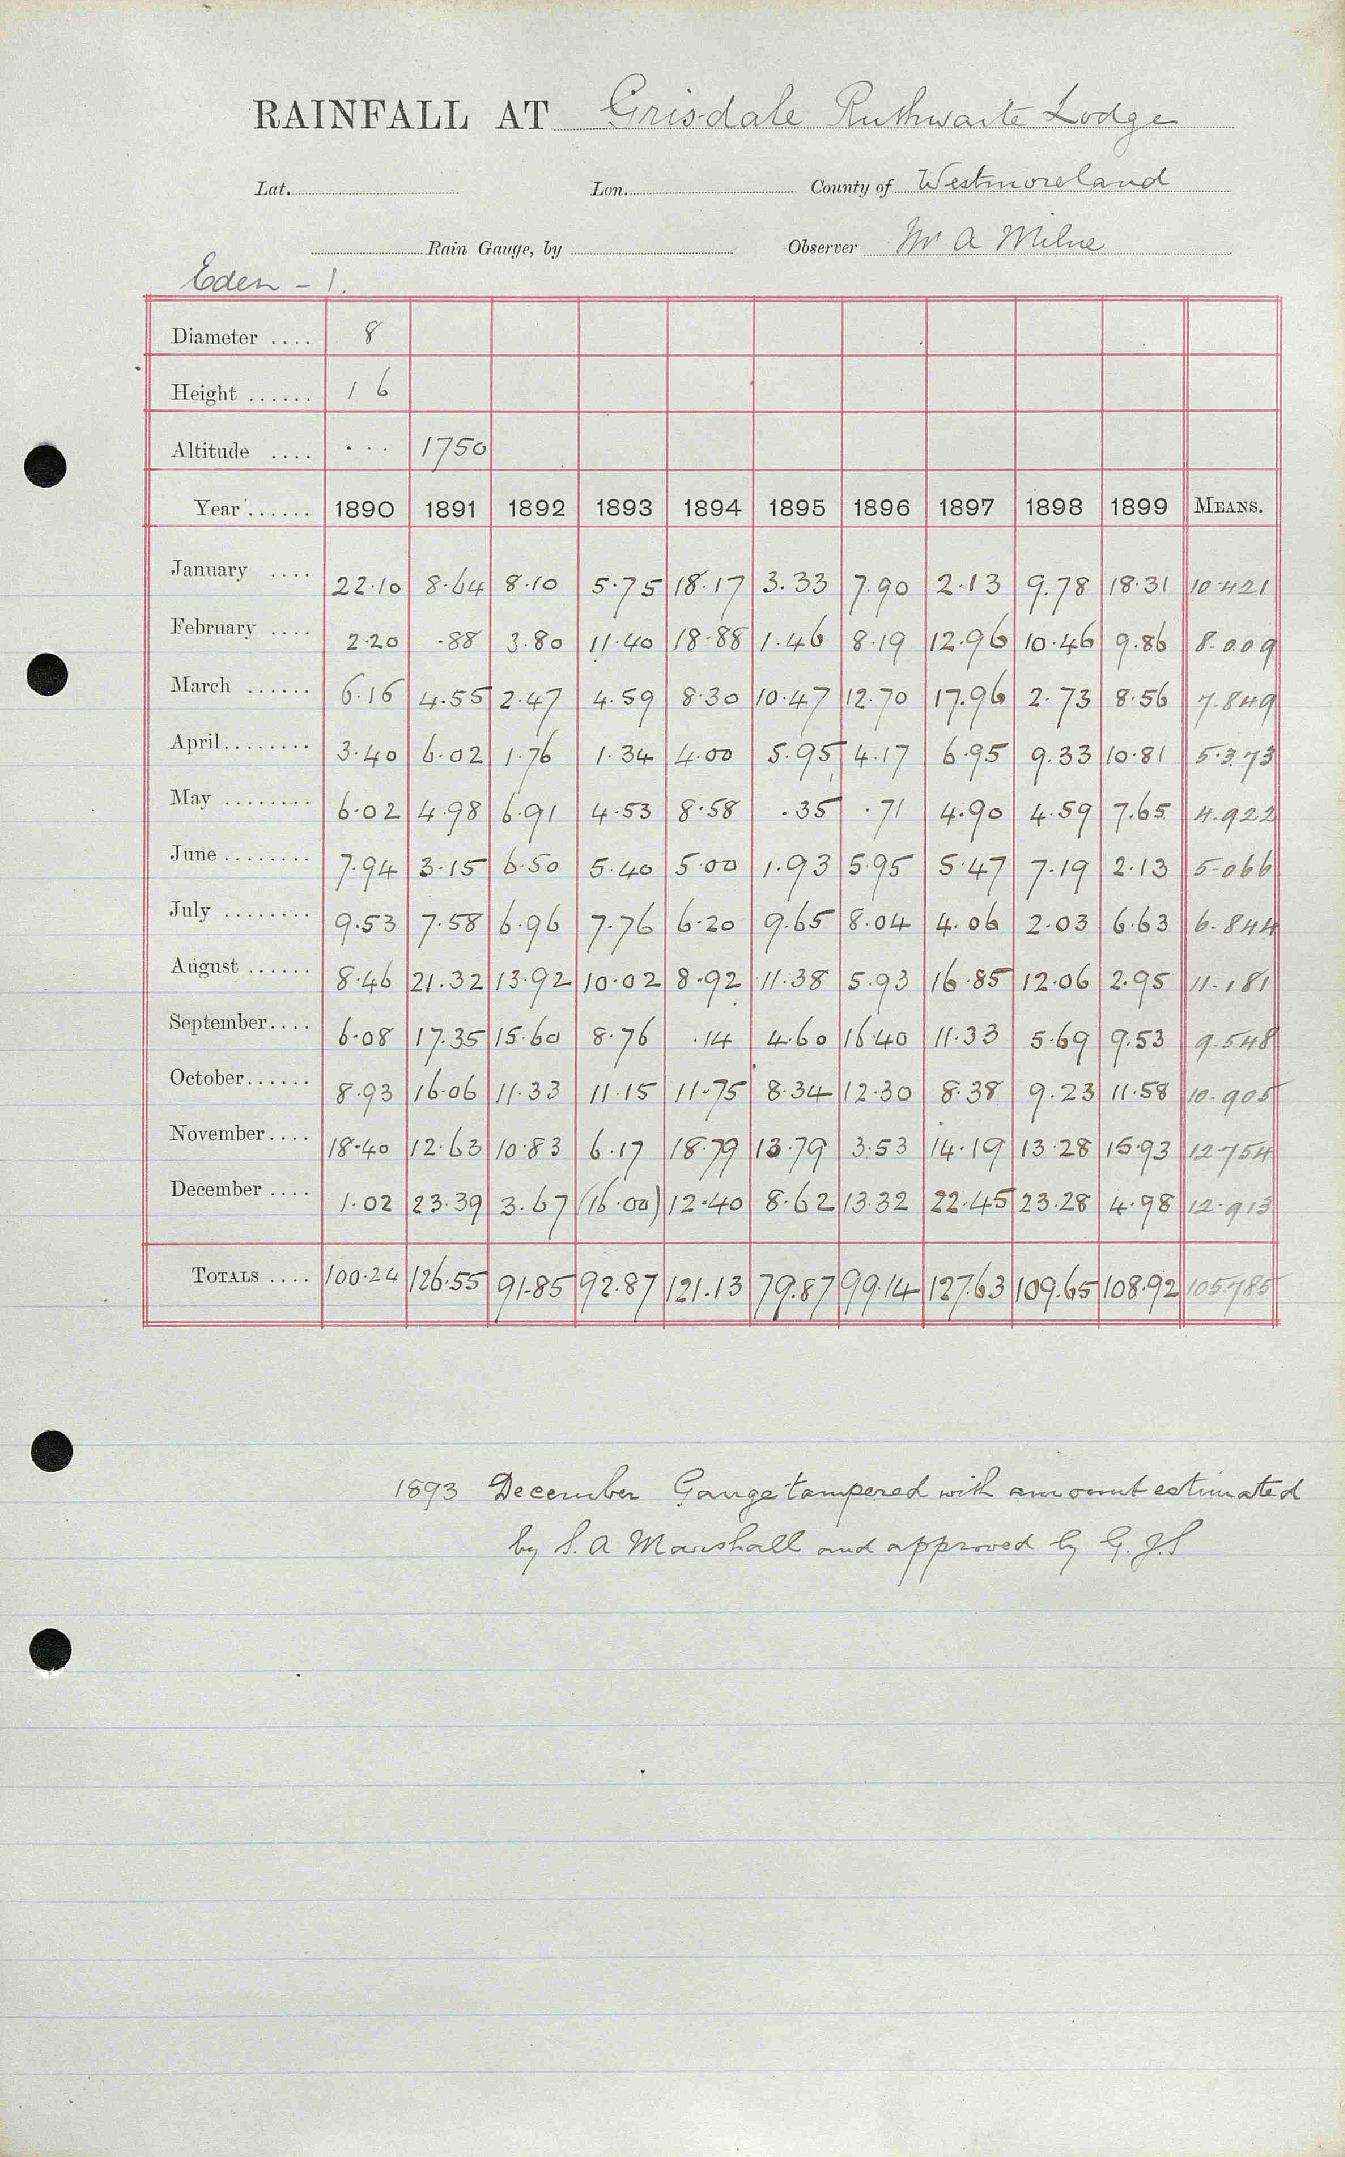 RAINFALL AT Grisdale Ruthwaite Lodge
Lat. Lon. County of Westmoreland
Rain Gauge, by Observer Mr A Milne
Eden - 1.
Diameter .... 8
Height ...... 1 6
Altitude .... ... 1750
Year ...... 1890 1891 1892 1893 1894 1895 1896 1897 1898 1899 MEANS.
January .... 22.10 8.64 8.10 5.75 18.17 3.33 7.90 2.13 9.78 18.31 10.421
February .... 2.20 .88 3.80 11.40 18.88 1.46 8.19 12.96 10.46 9.86 8.009
March ...... 6.16 4.55 2.47 4.59 8.30 10.47 12.70 17.96 2.73 8.56 7.849
April ........ 3.40 6.02 1.76 1.34 4.00 5.95 4.17 6.95 9.33 10.81 5.373
May ........ 6.02 4.98 6.91 4.53 8.58 .35 .71 4.90 4.59 7.65 4.922
June ........ 7.94 3.15 6.50 5.40 5.00 1.93 5.95 5.47 7.19 2.13 5.066
July ........ 9.53 7.58 6.96 7.76 6.20 9.65 8.04 4.06 2.03 6.63 6.844
August ...... 8.46 21.32 13.92 10.02 8.92 11.38 5.93 16.85 12.06 2.95 11.181
September .... 6.08 17.35 15.60 8.76 .14 4.60 16.40 11.33 5.69 9.53 9.548
October ...... 8.93 16.06 11.33 11.15 11.75 8.34 12.30 8.38 9.23 11.58 10.905
November .... 18.40 12.63 10.83 6.17 18.79 13.79 3.53 14.19 13.28 15.93 12.754
December .... 1.02 23.39 3.67 (16.00) 12.40 8.62 13.32 22.45 23.28 4.98 12.913
TOTALS .... 100.24 126.55 91.85 92.87 121.13 79.87 99.14 127.63 109.65 108.92 105.785
1893 December Gauge tampered with amount estimated
by S. A Marshall and approved by G. J. S